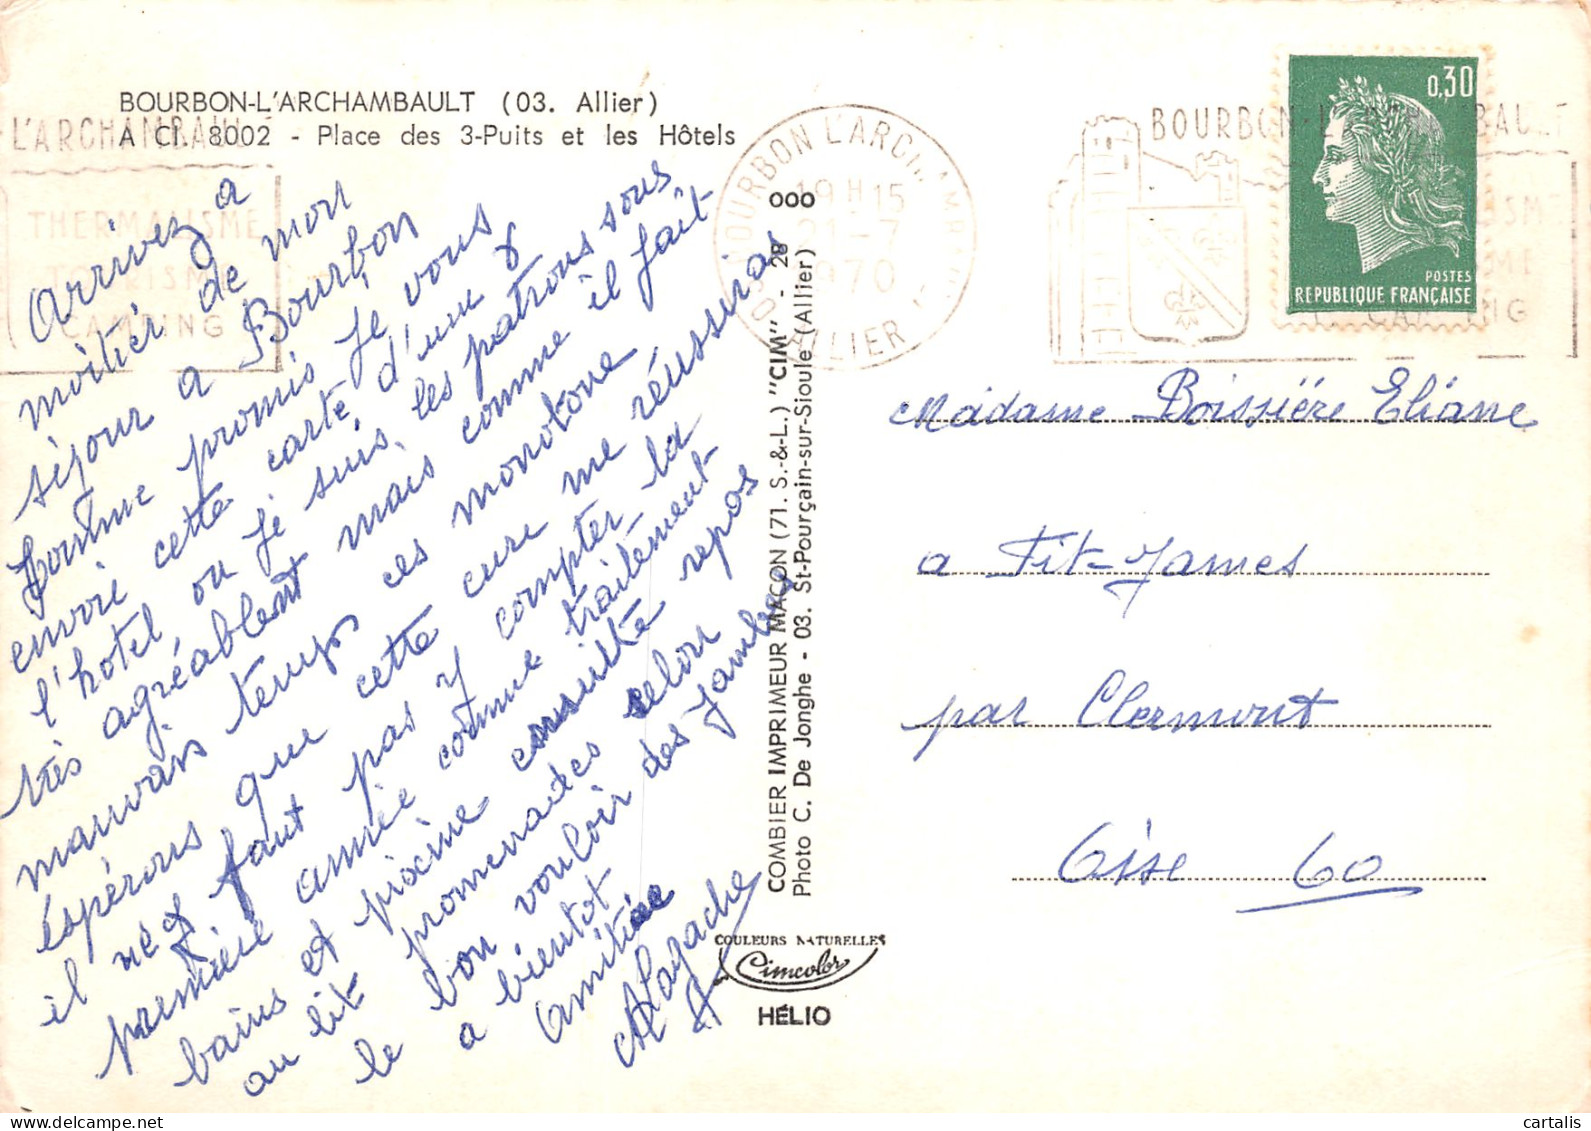 BOURBON-L'ARCHAMBAULT (03. Allier)
A Cl. 8002 - Place des 3-Puits et les Hôtels
L'ARCHAMBAULT
THERMALISME
TOURISME
CAMPING
BOURBON L'ARCHAMBAULT
19 H 15
21-7
1970
03 ALLIER
BOURBON-L'ARCHAMBAULT
CAMPING
0,30
POSTES
REPUBLIQUE FRANÇAISE
Arrivez a
moitier de mon
séjour a Bourbon
comme promis je vous
envoie cette carte d'une
l'hotel ou je suis, les patrons sous
très agréablent mais comme il fait
mauvais temps ces monotone
espérons que cette cure me réussiras
il ne faut pas y compter la
première année comme traitement
bains et piscine ensuite repos
au lit promenades selon
le bon vouloir des jambes
a bientot
amitiée
Lagache
COMBIER IMPRIMEUR MACON (71. S.-&-L.) "CIM" - 2B 000
Photo C. De Jonghe - 03. St-Pourçain-sur-Sioule (Allier)
COULEURS NATURELLES
Cimcolor
HÉLIO
Madame Boissière Eliane
a Fit-James
par Clermont
Oise 60
cartalis
www.delcampe.net